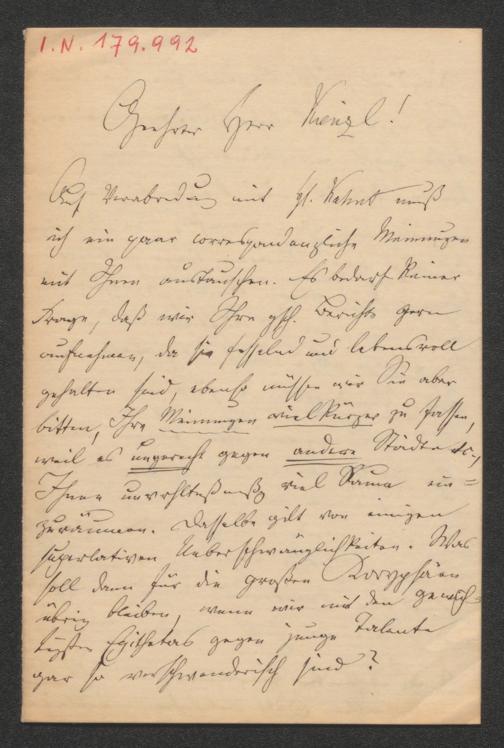 I.N. 179.992
Geehrter Herr Kienzl!
Auf Verabredung mit H. Kahnt muß
ich ein paar correspondenzliche Meinungen
mit Ihnen austauschen. Es bedarf keiner
Frage, daß wir Ihre gsch. Berichte gern
aufnehmen, da sie fesselnd und lebensvoll
gehalten sind, ebenso müssen wir Sie aber
bitten, Ihre Meinungen viel kürzer zu fassen,
weil es ungerecht gegen andere Städte
Ihnen viel Raum ein=
zuräumen. Dasselbe gilt von einigen
superlativen Ueberschwänglichkeiten. Was
soll dann für die großen Koryphäen
übrig bleiben, wenn wir mit den gewich=
tigsten Epithetas gegen junge Talente
gar so verschwenderisch sind?